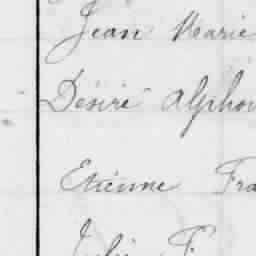 Jean Marie
Désiré Alphon
Etienne Fra
Julie F